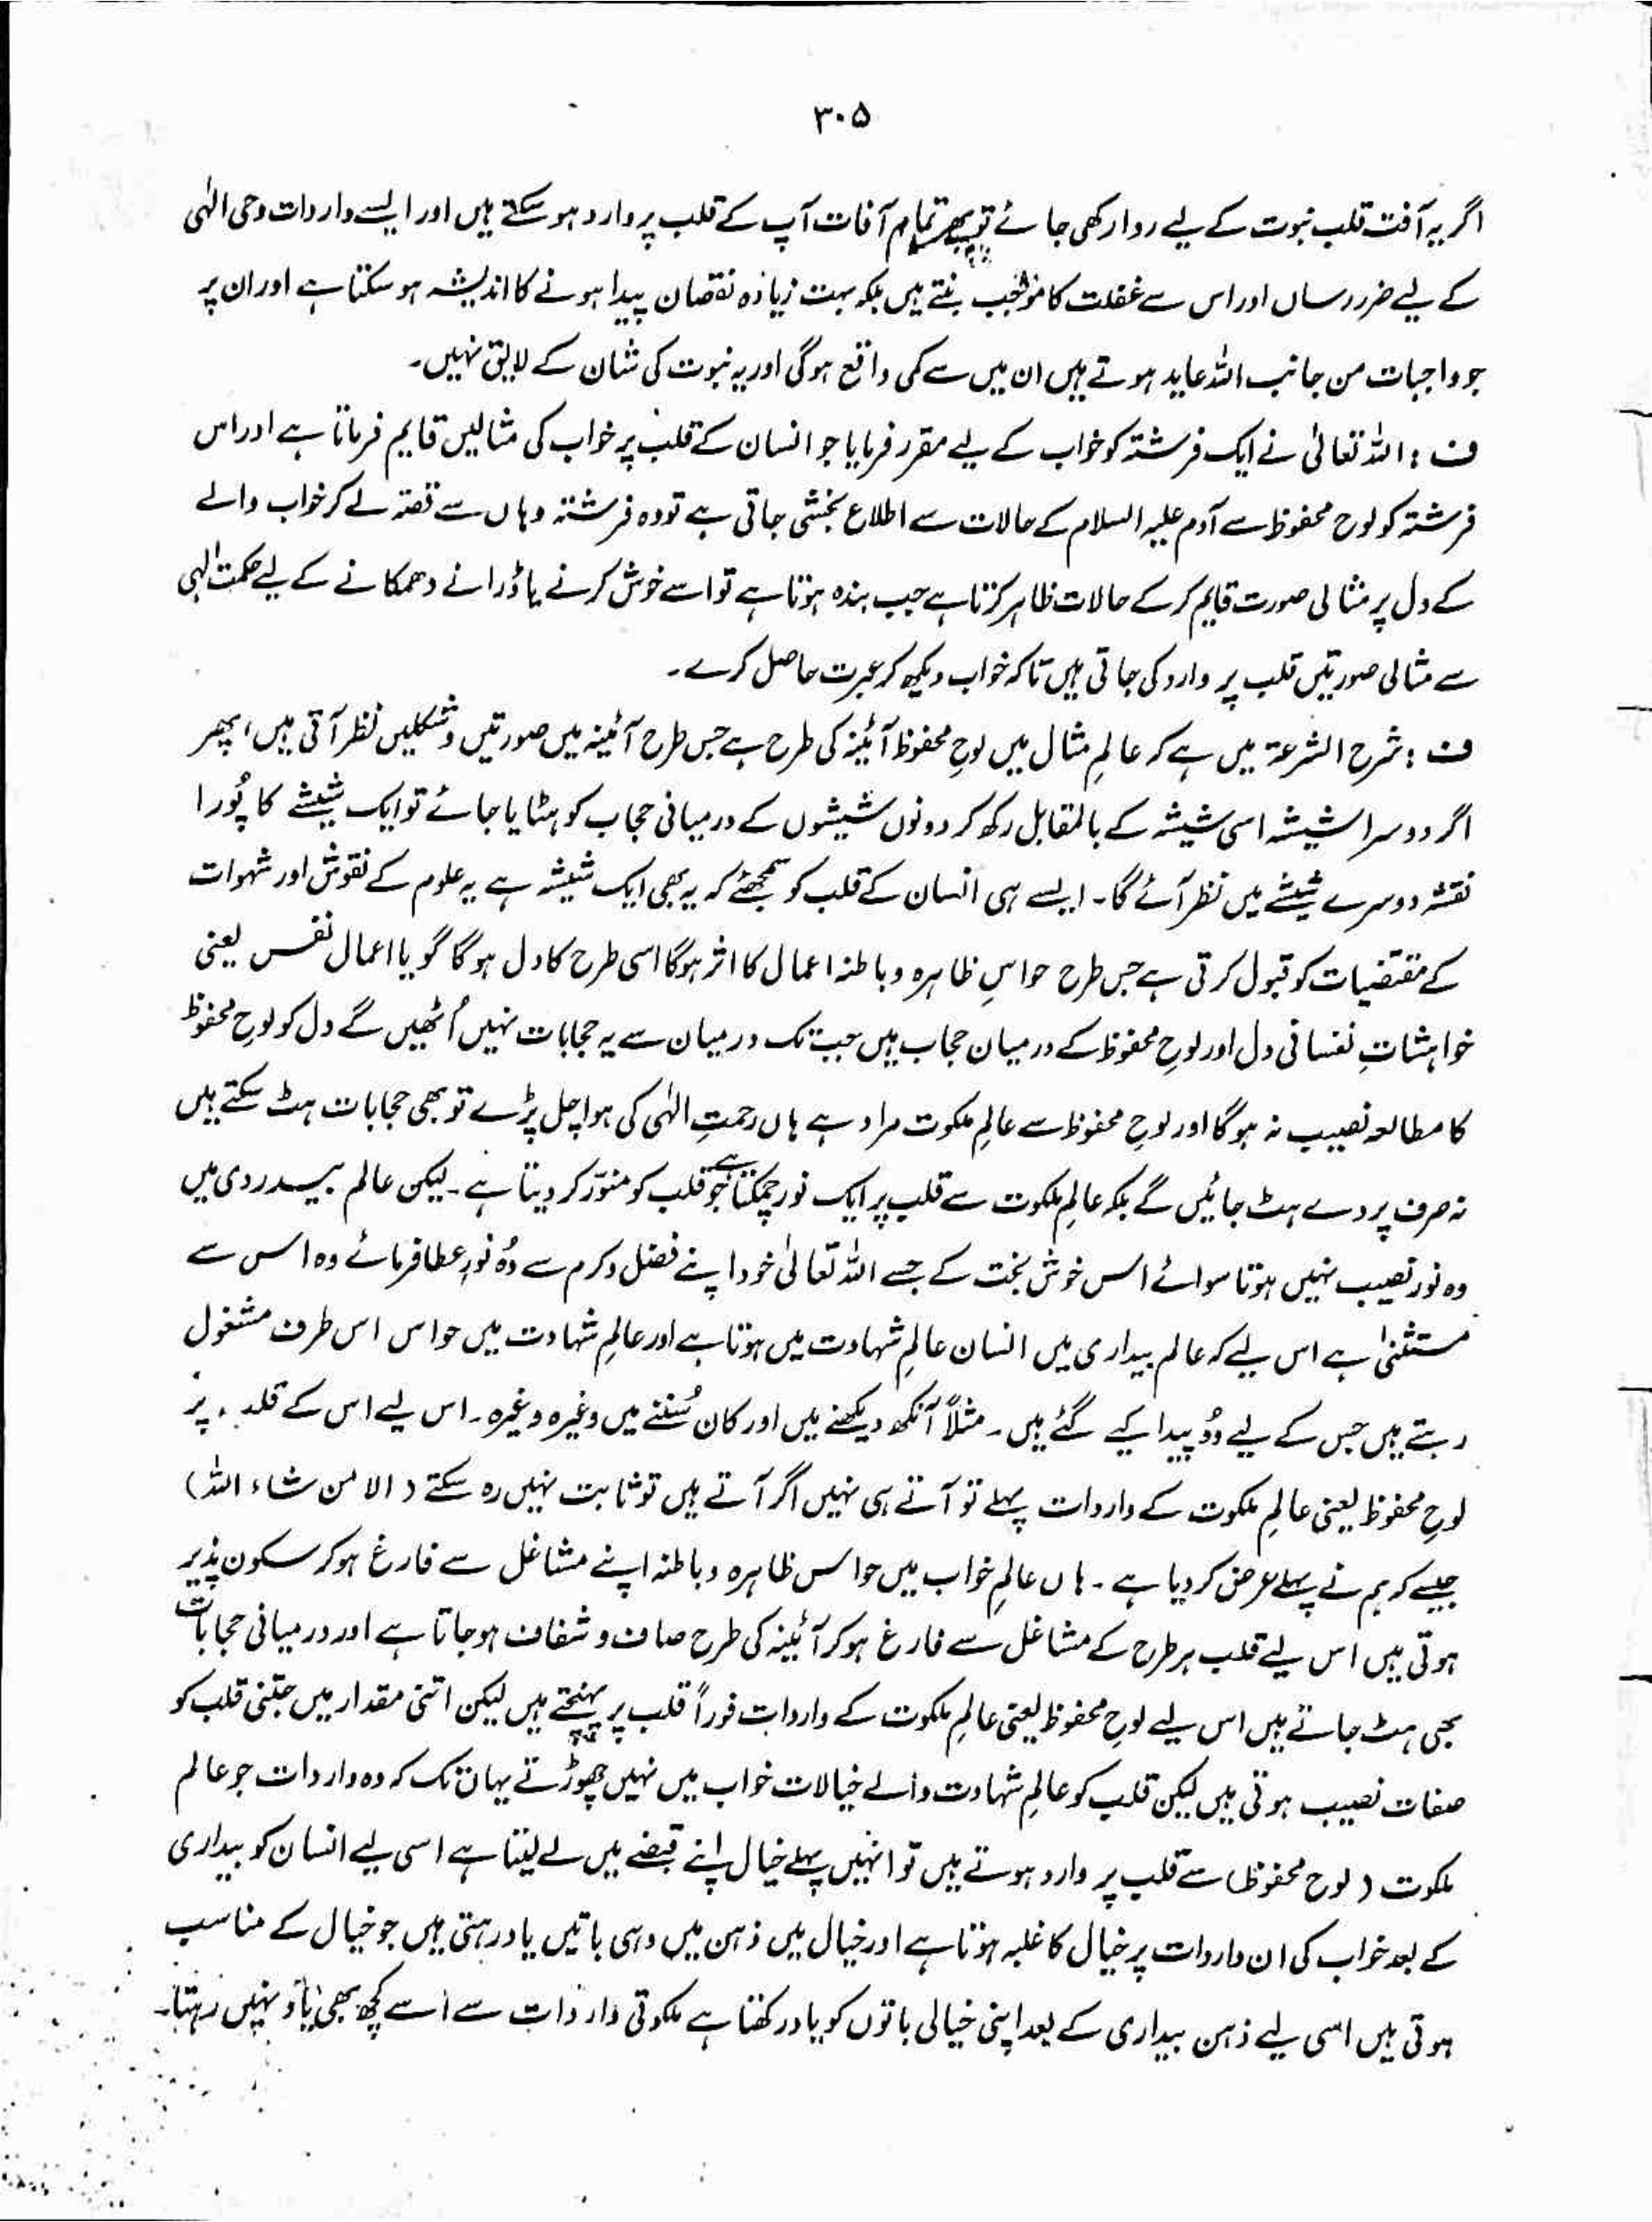 ۳۰۵
اگر یہ آفت قلب نبوت کے لیے روا رکھی جائے تو پھر تمام آفات آپ کے قلب پر وارد ہو سکتے ہیں اور ایسے واردات وحی الٰہی
کے لیے ضرر رساں اور اس سے غفلت کا موجب بنتے ہیں بلکہ بہت زیادہ نقصان پیدا ہونے کا اندیشہ ہو سکتا ہے اور ان پر
جو واجبات من جانب اللہ عاید ہوتے ہیں ان میں سے کمی واقع ہوگی اور یہ نبوت کی شان کے لایق نہیں۔
ف : اللہ تعالیٰ نے ایک فرشتہ کو خواب کے لیے مقرر فرمایا جو انسان کے قلب پر خواب کی مثالیں قایم فرماتا ہے اور اس
فرشتہ کو لوح محفوظ سے آدم علیہ السلام کے حالات سے اطلاع بخشی جاتی ہے تو وہ فرشتہ وہاں سے قصہ لے کر خواب والے
کے دل پر مثالی صورت قایم کر کے حالات ظاہر کرتا ہے جب بندہ ہوتا ہے تو اسے خوش کرنے یا ڈرانے دھمکانے کے لیے حکمت الٰہی
سے مثالی صورتیں قلب پر وارد کی جاتی ہیں تاکہ خواب دیکھ کر عبرت حاصل کرے۔
ف : شرح الشرعۃ میں ہے کہ عالمِ مثال میں لوحِ محفوظ آئینہ کی طرح ہے جس طرح آئینہ میں صورتیں و شکلیں نظر آتی ہیں، پھر
اگر دوسرا شیشہ اسی شیشہ کے بالمقابل رکھ کر دونوں شیشوں کے درمیانی حجاب کو ہٹایا جائے تو ایک شیشے کا پُورا
نقشہ دوسرے شیشے میں نظر آئے گا۔ ایسے ہی انسان کے قلب کو سمجھئے کہ یہ بھی ایک شیشہ ہے یہ علوم کے نقوش اور شہوات
کے مقتضیات کو قبول کرتی ہے جس طرح حواسِ ظاہرہ و باطنہ اعمال کا اثر ہوگا اسی طرح کا دل ہوگا گویا اعمال نفس یعنی
خواہشاتِ نفسانی دل اور لوحِ محفوظ کے درمیان حجاب ہیں جب تک درمیان سے یہ حجابات نہیں اُٹھیں گے دل کو لوحِ محفوظ
کا مطالعہ نصیب نہ ہوگا اور لوحِ محفوظ سے عالمِ ملکوت مراد ہے ہاں رحمتِ الٰہی کی ہوا چل پڑے تو بھی حجابات ہٹ سکتے ہیں
نہ صرف پردے ہٹ جائیں گے بلکہ عالمِ ملکوت سے قلب پر ایک نور چمکتا ہے جو قلب کو منوّر کر دیتا ہے۔ لیکن عالم بیدردی میں
وہ نور نصیب نہیں ہوتا سوائے اس خوش بخت کے جسے اللہ تعالیٰ خود اپنے فضل و کرم سے وُہ نور عطا فرمائے وہ اس سے
مستثنیٰ ہے اس لیے کہ عالم بیداری میں انسان عالمِ شہادت میں ہوتا ہے اور عالمِ شہادت میں حواس اس طرف مشغول
رہتے ہیں جس کے لیے وُہ پیدا کیے گئے ہیں۔ مثلاً آنکھ دیکھنے میں اور کان سُننے میں وغیرہ وغیرہ۔ اس لیے اس کے قلب پر
لوحِ محفوظ یعنی عالمِ ملکوت کے واردات پہلے تو آتے ہی نہیں اگر آتے ہیں تو ثابت نہیں رہ سکتے (الا من شاء اللہ)
جیسے کہ ہم نے پہلے عرض کر دیا ہے۔ ہاں عالمِ خواب میں حواس ظاہرہ و باطنہ اپنے مشاغل سے فارغ ہو کر سکون پذیر
ہوتی ہیں اس لیے قلب ہر طرح کے مشاغل سے فارغ ہو کر آئینہ کی طرح صاف و شفاف ہو جاتا ہے اور درمیانی حجابات
بھی ہٹ جاتے ہیں اس لیے لوحِ محفوظ یعنی عالمِ ملکوت کے واردات فوراً قلب پر پہنچتے ہیں لیکن اتنی مقدار میں جتنی قلب کو
صفات نصیب ہوتی ہیں لیکن قلب کو عالمِ شہادت والے خیالات خواب میں نہیں چھوڑتے یہاں تک کہ وہ واردات جو عالم
ملکوت (لوح محفوظ) سے قلب پر وارد ہوتے ہیں تو انہیں پہلے خیال اپنے قبضے میں لے لیتا ہے اسی لیے انسان کو بیداری
کے بعد خواب کی ان واردات پر خیال کا غلبہ ہوتا ہے اور خیال میں ذہن میں وہی باتیں یاد رہتی ہیں جو خیال کے مناسب
ہوتی ہیں اسی لیے ذہن بیداری کے بعد اپنی خیالی باتوں کو یاد رکھتا ہے ملکوتی واردات سے اسے کچھ بھی یاد نہیں رہتا۔